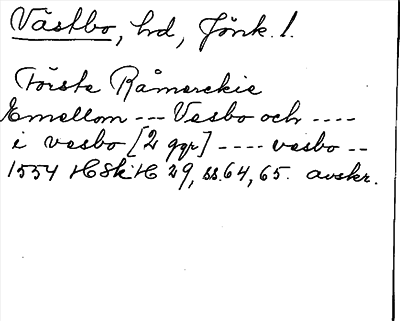 Västbo, hd, Jönk. l.
Förste Råmerckie
Emellom --- Vesbo och ----
i vesbo [2 ggr] ---- vesbo --
1554 HSkH 29, ss. 64, 65. avskr.